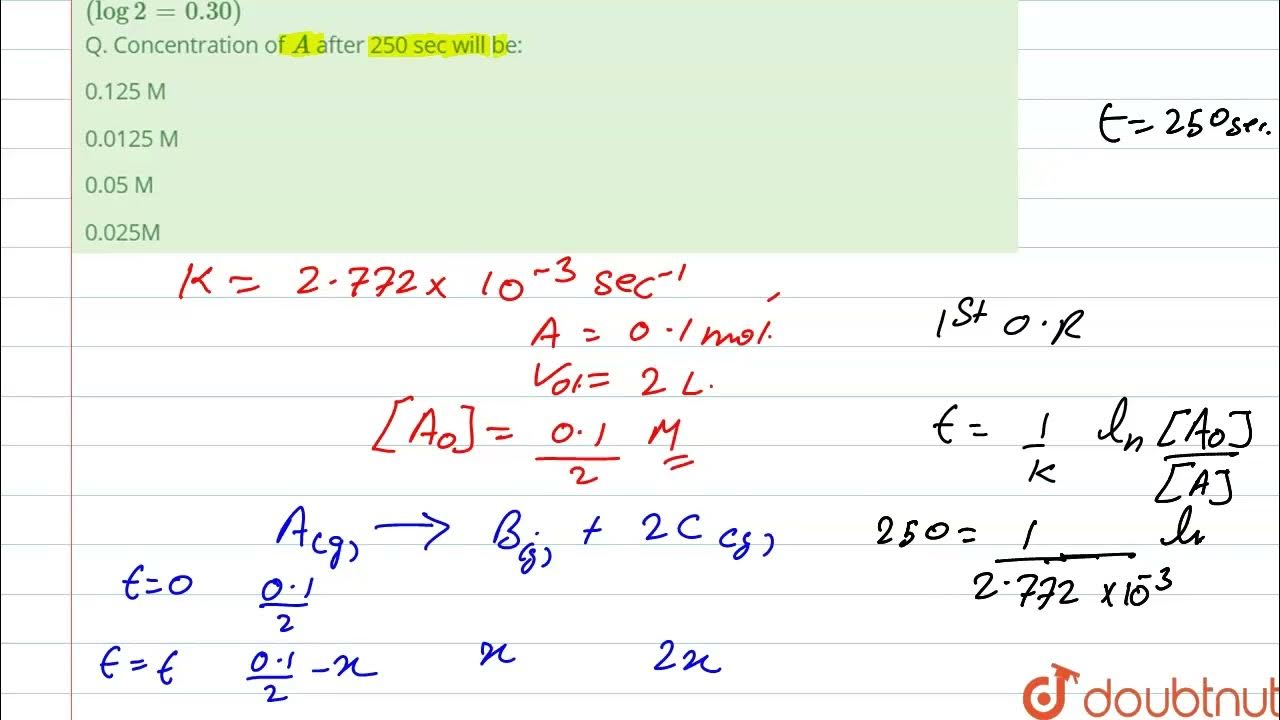 (log 2 = 0.30)
Q. Concentration of A after 250 sec will be:
0.125 M
0.0125 M
0.05 M
0.025M
t = 250 sec.
K = 2.772 × 10⁻³ sec⁻¹
A = 0.1 mol.
Vol = 2 L.
[A₀] = 0.1/2 M
1st O.R
t = 1/K ln [A₀]/[A]
250 = 1/2.772 × 10⁻³ ln
A(g) → B(g) + 2C(g)
t=0 0.1/2
t=t 0.1/2 - x x 2x
doubtnut